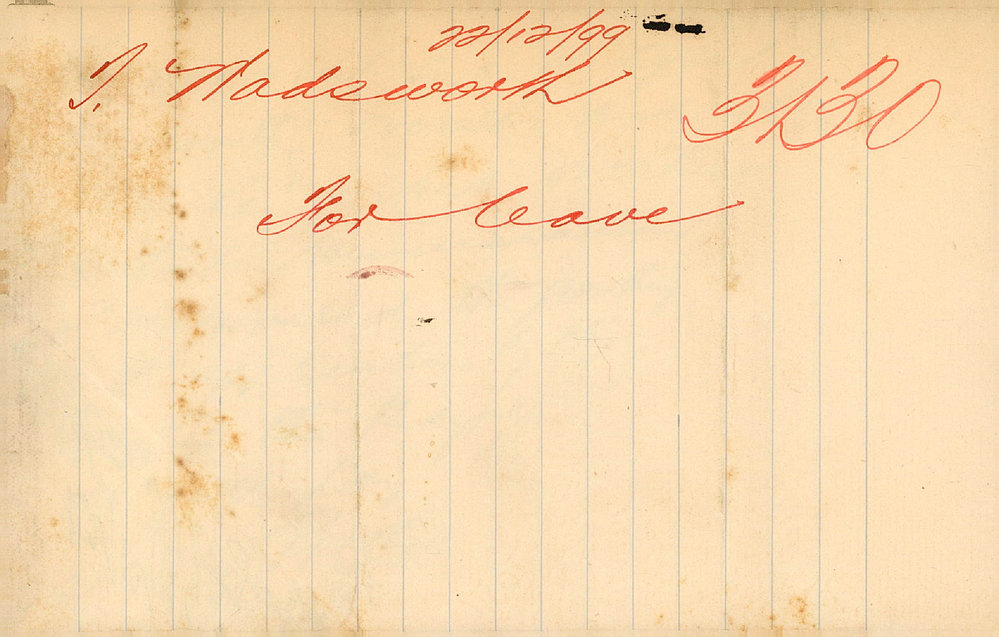 22/12/99
T. Wadsworth
For leave